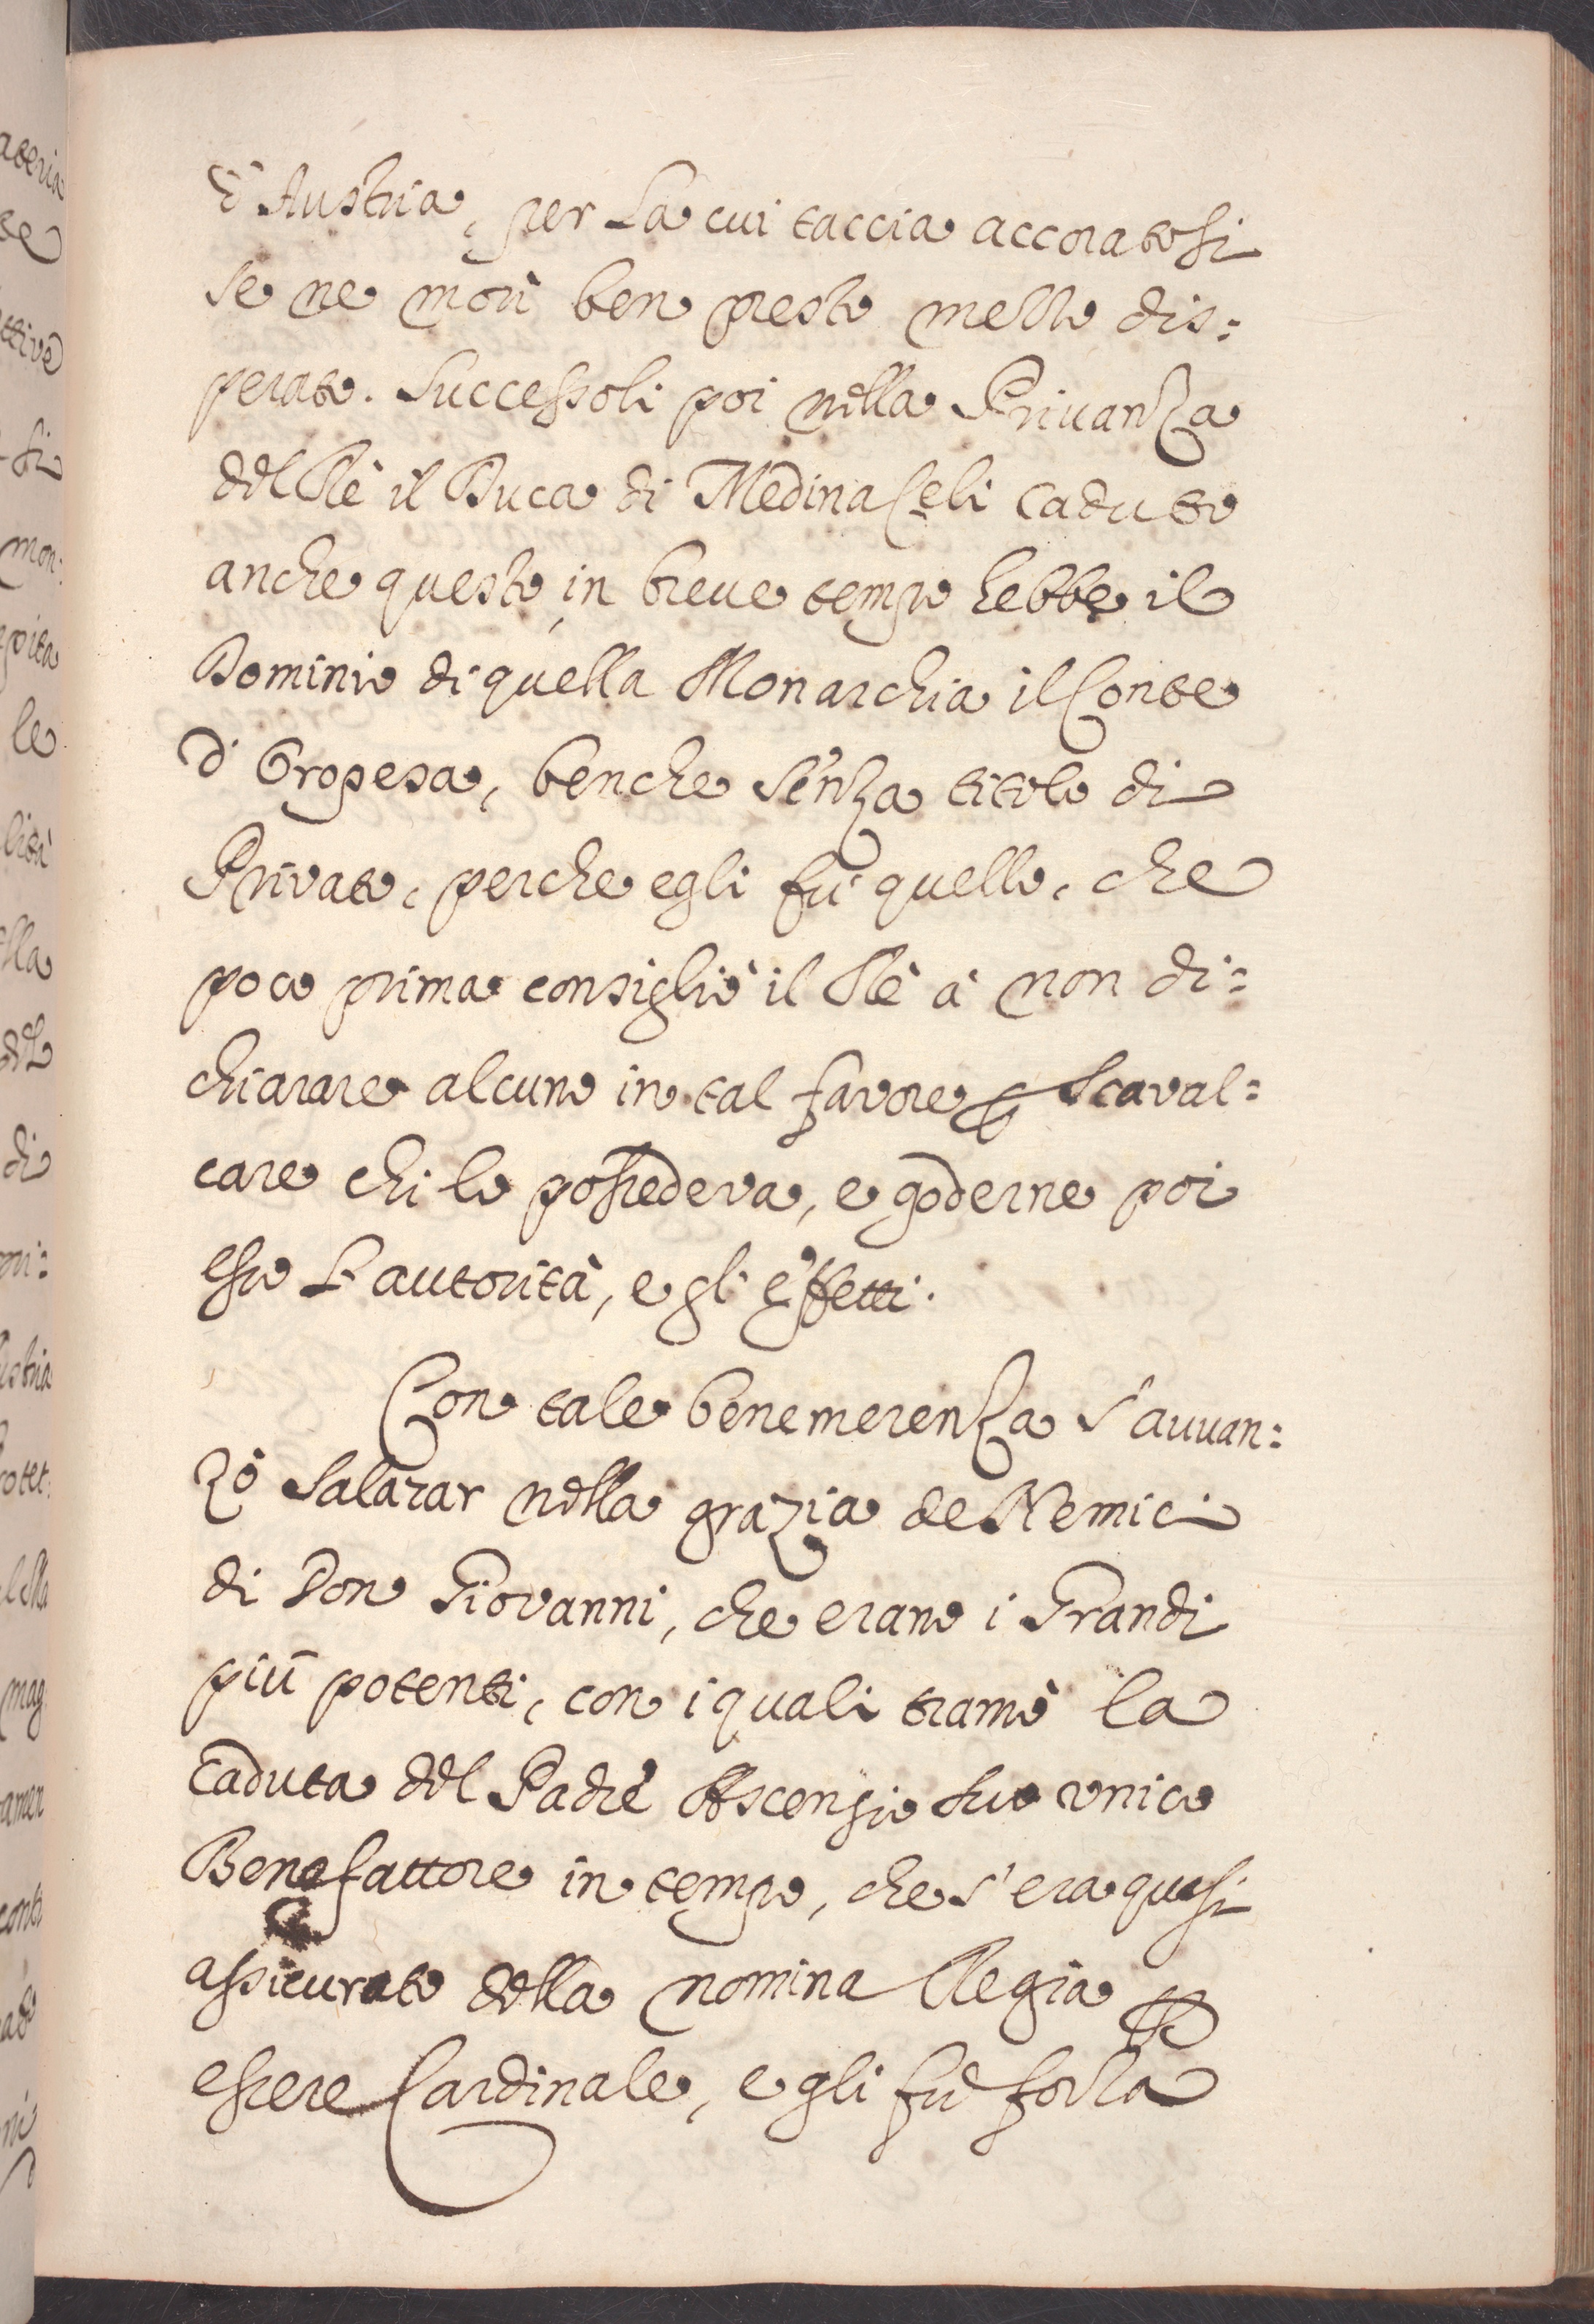 d'Austria, per La cui taccia accoratosi
se ne morì ben presto mezzo dis=
perato. Successoli poi nella Privanza
del Rè il Duca di Medina Celi caduto
anche questo, in breve tempo hebbe il
Dominio di quella Monarchia il Conte
d'Oropesa, benche senza titolo di
Privato, perche egli fù quello, che
poco prima consigliò il Rè à non di=
chiarare alcuno in tal favore p scaval=
care chi lo possedeva, e goderne poi
esso L'autorità, e gl'effetti.
Con tale benemerenza s'auuan=
zò Salazar nella grazia de Nemici
di Don Giovanni, che erano i Grandi
più potenti, con i quali tramò la
Caduta del Padre Ascensio suo unico
Benefattore in tempo, che s'era quasi
assicurato della nomina Regia p
essere Cardinale, e gli fù forza